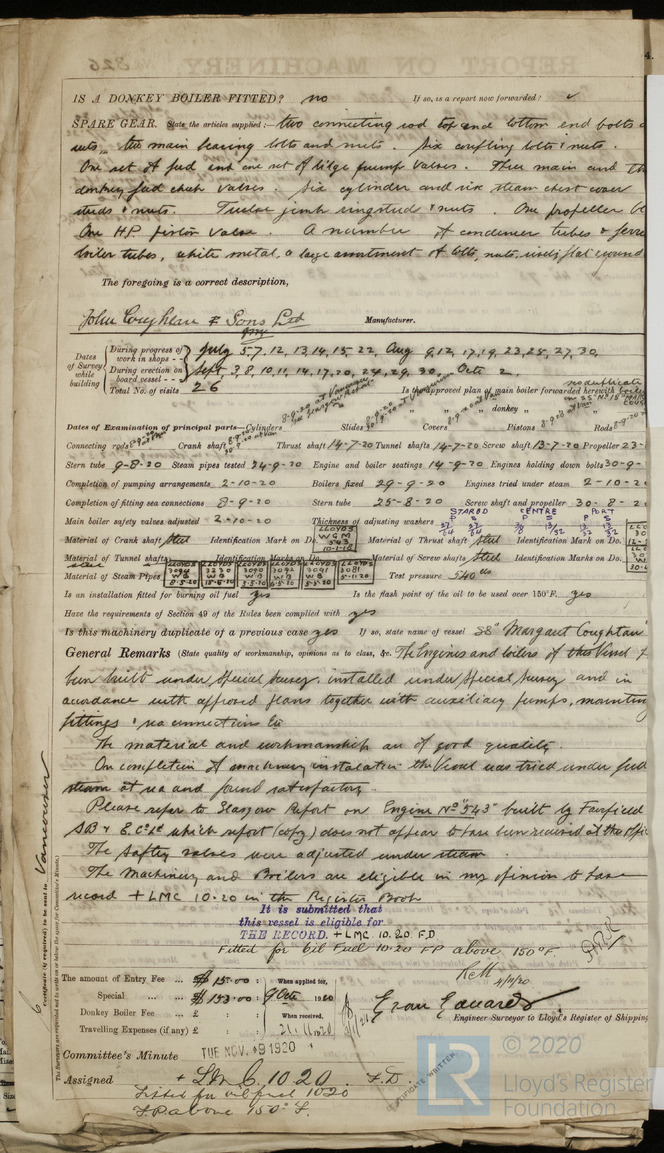 IS A DONKEY BOILER FITTED? no If so, is a report now forwarded? ✓
SPARE GEAR. State the articles supplied:— two connecting rod top end bottom end bolts
nuts, two main bearing bolts and nuts. Six coupling bolts & nuts.
One set of feed and one set of bilge pump valves. Three main and
donkey feed check valves. Six cylinder and six steam chest cover
studs & nuts. Twelve junk ring stud & nuts. One propeller
One H.P. piston valve. A number of condenser tubes &
boiler tubes, white metal, a large assortment of bolts, nuts, flat round
The foregoing is a correct description,
John Coughlan & Sons Ltd Manufacturer.
Dates of Survey while building
During progress of work in shops - - July 5, 7, 12, 13, 14, 15, 22, Aug 9, 12, 17, 19, 23, 25, 27, 30,
During erection on board vessel - - Sept 3, 8, 10, 11, 14, 17, 20, 24, 29, 30, Octr 2.
Total No. of visits 26 Is the approved plan of main boiler forwarded herewith
" " " donkey "
Dates of Examination of principal parts—Cylinders Slides Covers Pistons Rods
Connecting rods Crank shaft Thrust shaft 14-7-20 Tunnel shafts 14-7-20 Screw shaft 13-7-20 Propeller 23-
Stern tube 9-8-20 Steam pipes tested 24-9-20 Engine and boiler seatings 14-9-20 Engines holding down bolts 30-9-
Completion of pumping arrangements 2-10-20 Boilers fixed 29-9-20 Engines tried under steam 2-10-2
Completion of fitting sea connections 8-9-20 Stern tube 25-8-20 Screw shaft and propeller 30-8-2
STARBD CENTRE PORT
Main boiler safety valves adjusted 2-10-20 Thickness of adjusting washers
Material of Crank shaft Steel Identification Mark on Do. LLOYDS WGM 543 10-1-18 Material of Thrust shaft Steel Identification Mark on Do.
Material of Tunnel shafts Identification Marks on Do. Material of Screw shafts Steel Identification Marks on Do.
Material of Steam Pipes Test pressure 540 lbs
Is an installation fitted for burning oil fuel yes Is the flash point of the oil to be used over 150°F. yes
Have the requirements of Section 49 of the Rules been complied with yes
Is this machinery duplicate of a previous case yes If so, state name of vessel SS "Margaret Coughlan"
General Remarks (State quality of workmanship, opinions as to class, &c. The Engines and boilers of this Vessel
been built under special survey, installed under special survey and in
accordance with approved plans together with auxiliary pumps, mounting
fittings & sea connections etc
The material and workmanship are of good quality.
On completion of machinery instalation the Vessel was tried under full
steam at sea and found satisfactory.
Please refer to Glasgow Report on Engine No "543" built by Fairfield
S.B. & E. Co Ld which report (copy) does not appear to have been received at this
The Saftey valves were adjusted under steam.
The Machinery and Boilers are eligible in my opinion to have
record + LMC 10.20 in the Register Book
It is submitted that
this vessel is eligible for
THE RECORD. + LMC. 10.20 F.D
Fitted for Oil Fuel 10.20 FP above 150°F.
4/11/20
The amount of Entry Fee ... $ 15.00 : When applied for,
Special ... ... $ 153.00 : 9 Oct 1920
Donkey Boiler Fee ... £ : : When received,
Travelling Expenses (if any) £ : :
Engineer Surveyor to Lloyd's Register of Shipping
Committee's Minute TUE. NOV. 9 1920
Assigned + LMC. 10.20. F.D
Fitted for oil fuel 10.20
F.P. above 150° F.
CERTIFICATE WRITTEN
Certificate (if required) to be sent to Vancouver
(The Surveyors are requested not to write on or below the space for Committee's Minute.)
LR © 2020
Lloyd's Register
Foundation